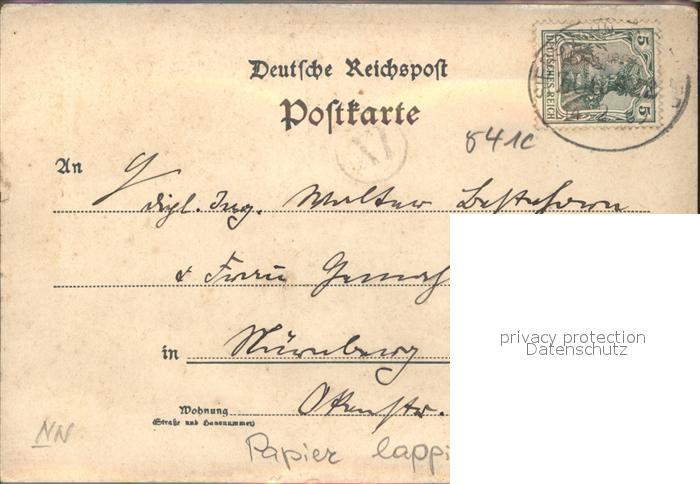 Deutsche Reichspost
Postkarte
5 DEUTSCHES REICH 5
XI
841c
An
Dipl. Ing. Walter
& Frau Gemahl
in Nürnberg
Wohnung
(Straße und Hausnummer)
NN
Papier lappi
privacy protection
Datenschutz